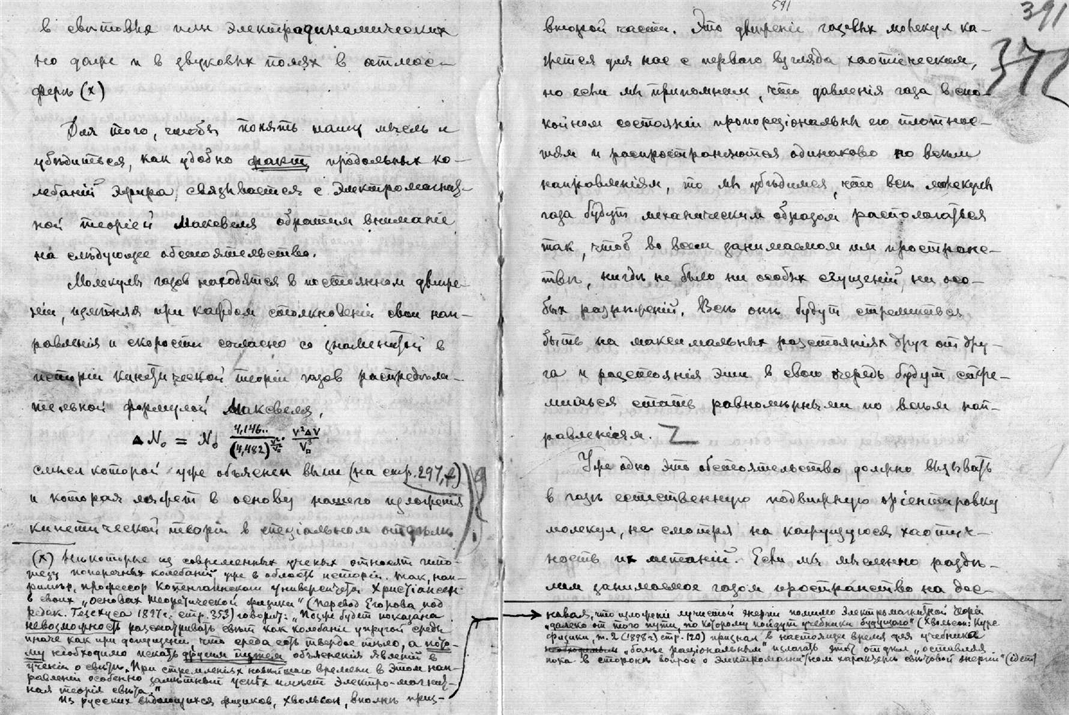 в световых или электродинамических
но даже и в звуковых полях в атмос-
ферѣ (х)
Для того, чтобы понять нашу мысль и
убѣдиться, как удобно факт продольных ко-
лебаний эфира связывается с электромагнит-
ной теорией Максвеля обратим внимание
на слѣдующее обстоятельство.
Молекулы газов находятся в постоянном движе-
нiи, измѣняя при каждом столкновенiй свои нап-
равленiя и скорости согласно со знаменитой в
исторiи кинетической теорiи газов распредѣли-
тельной формулой Максвеля,
Δ N₀ = N₀ 4,146.. / (4,482) V²ΔV / V³
смысл которой уже объяснен выше (на стр. 297,
и которая ляжет в основу нашего изложенiя
кинетической теорiи в спецiальном отдѣлѣ
(х) Нѣкоторые из современных ученых относят гипо-
тезу поперечных колебанiй уже в область исторiи. Так, нап-
римѣр, профессор Копенгагенского университета Христiансен
в своих "основах теоретической физики" (перевод Егорова под
редак. Гезехуса 1897 г. стр. 353) говорит: "Позже будет показана
невозможность разсматривать свѣт, как колебанiе упругой среды
иначе как при допущенiи, что среда есть твердое тѣло, а пото
му необходимо искать другим путем объясненiя явленiй в
ученiи о свѣтѣ. При стремленiях новѣйшаго времени в этом нап-
равленiи особенно замѣтный успѣх имѣет электро-магнит-
ная теорiя свѣта."
Из русских выдающихся физиков, Хвольсон, вполнѣ приз-
391
391
372
второй части. Это движенiе газовых молекул ка-
жется для нас с перваго взгляда хаотическим,
но если мы припомним, что давленiя газа в спо-
койном состоянiи пропорцiональны его плотнос-
тям и распространяются одинаково по всѣм
направленiям, то мы убѣдимся, что всѣ молекулы
газа будут механическим образом располагаться
так, чтоб во всем занимаемом им пространс-
твѣ, нигдѣ не было ни особых сгущенiй, ни осо-
бых разрѣженiй. Всѣ онѣ будут стремиться
быть на максимальных разстоянiях друг от дру-
га и разстоянiя эти в свою очередь будут стре-
миться стать равномѣрными по всѣм нап-
равленiям.
Уже одно это обстоятельство должно вызывать
в газѣ естественную подвижную орiентировку
молекул, не смотря на кажущуюся хаотич-
ность их метанiй. Если мы мысленно раздѣ-
лим занимаемое газом пространство на дос-
навая, что изложенiе лучистой энергiи помимо электромагнитной теорiи
"далеко от того пути, по которому пойдут учебники будущаго" (Хвольсон: Курс
физики, т. 2 (1898 г) стр. 120) признал в настоящее время для учебника
"болѣе рацiональным" излагать этот отдѣл "оставляя
пока в сторонѣ вопрос о электромагнитном характерѣ свѣтовой энергiи" (idem)